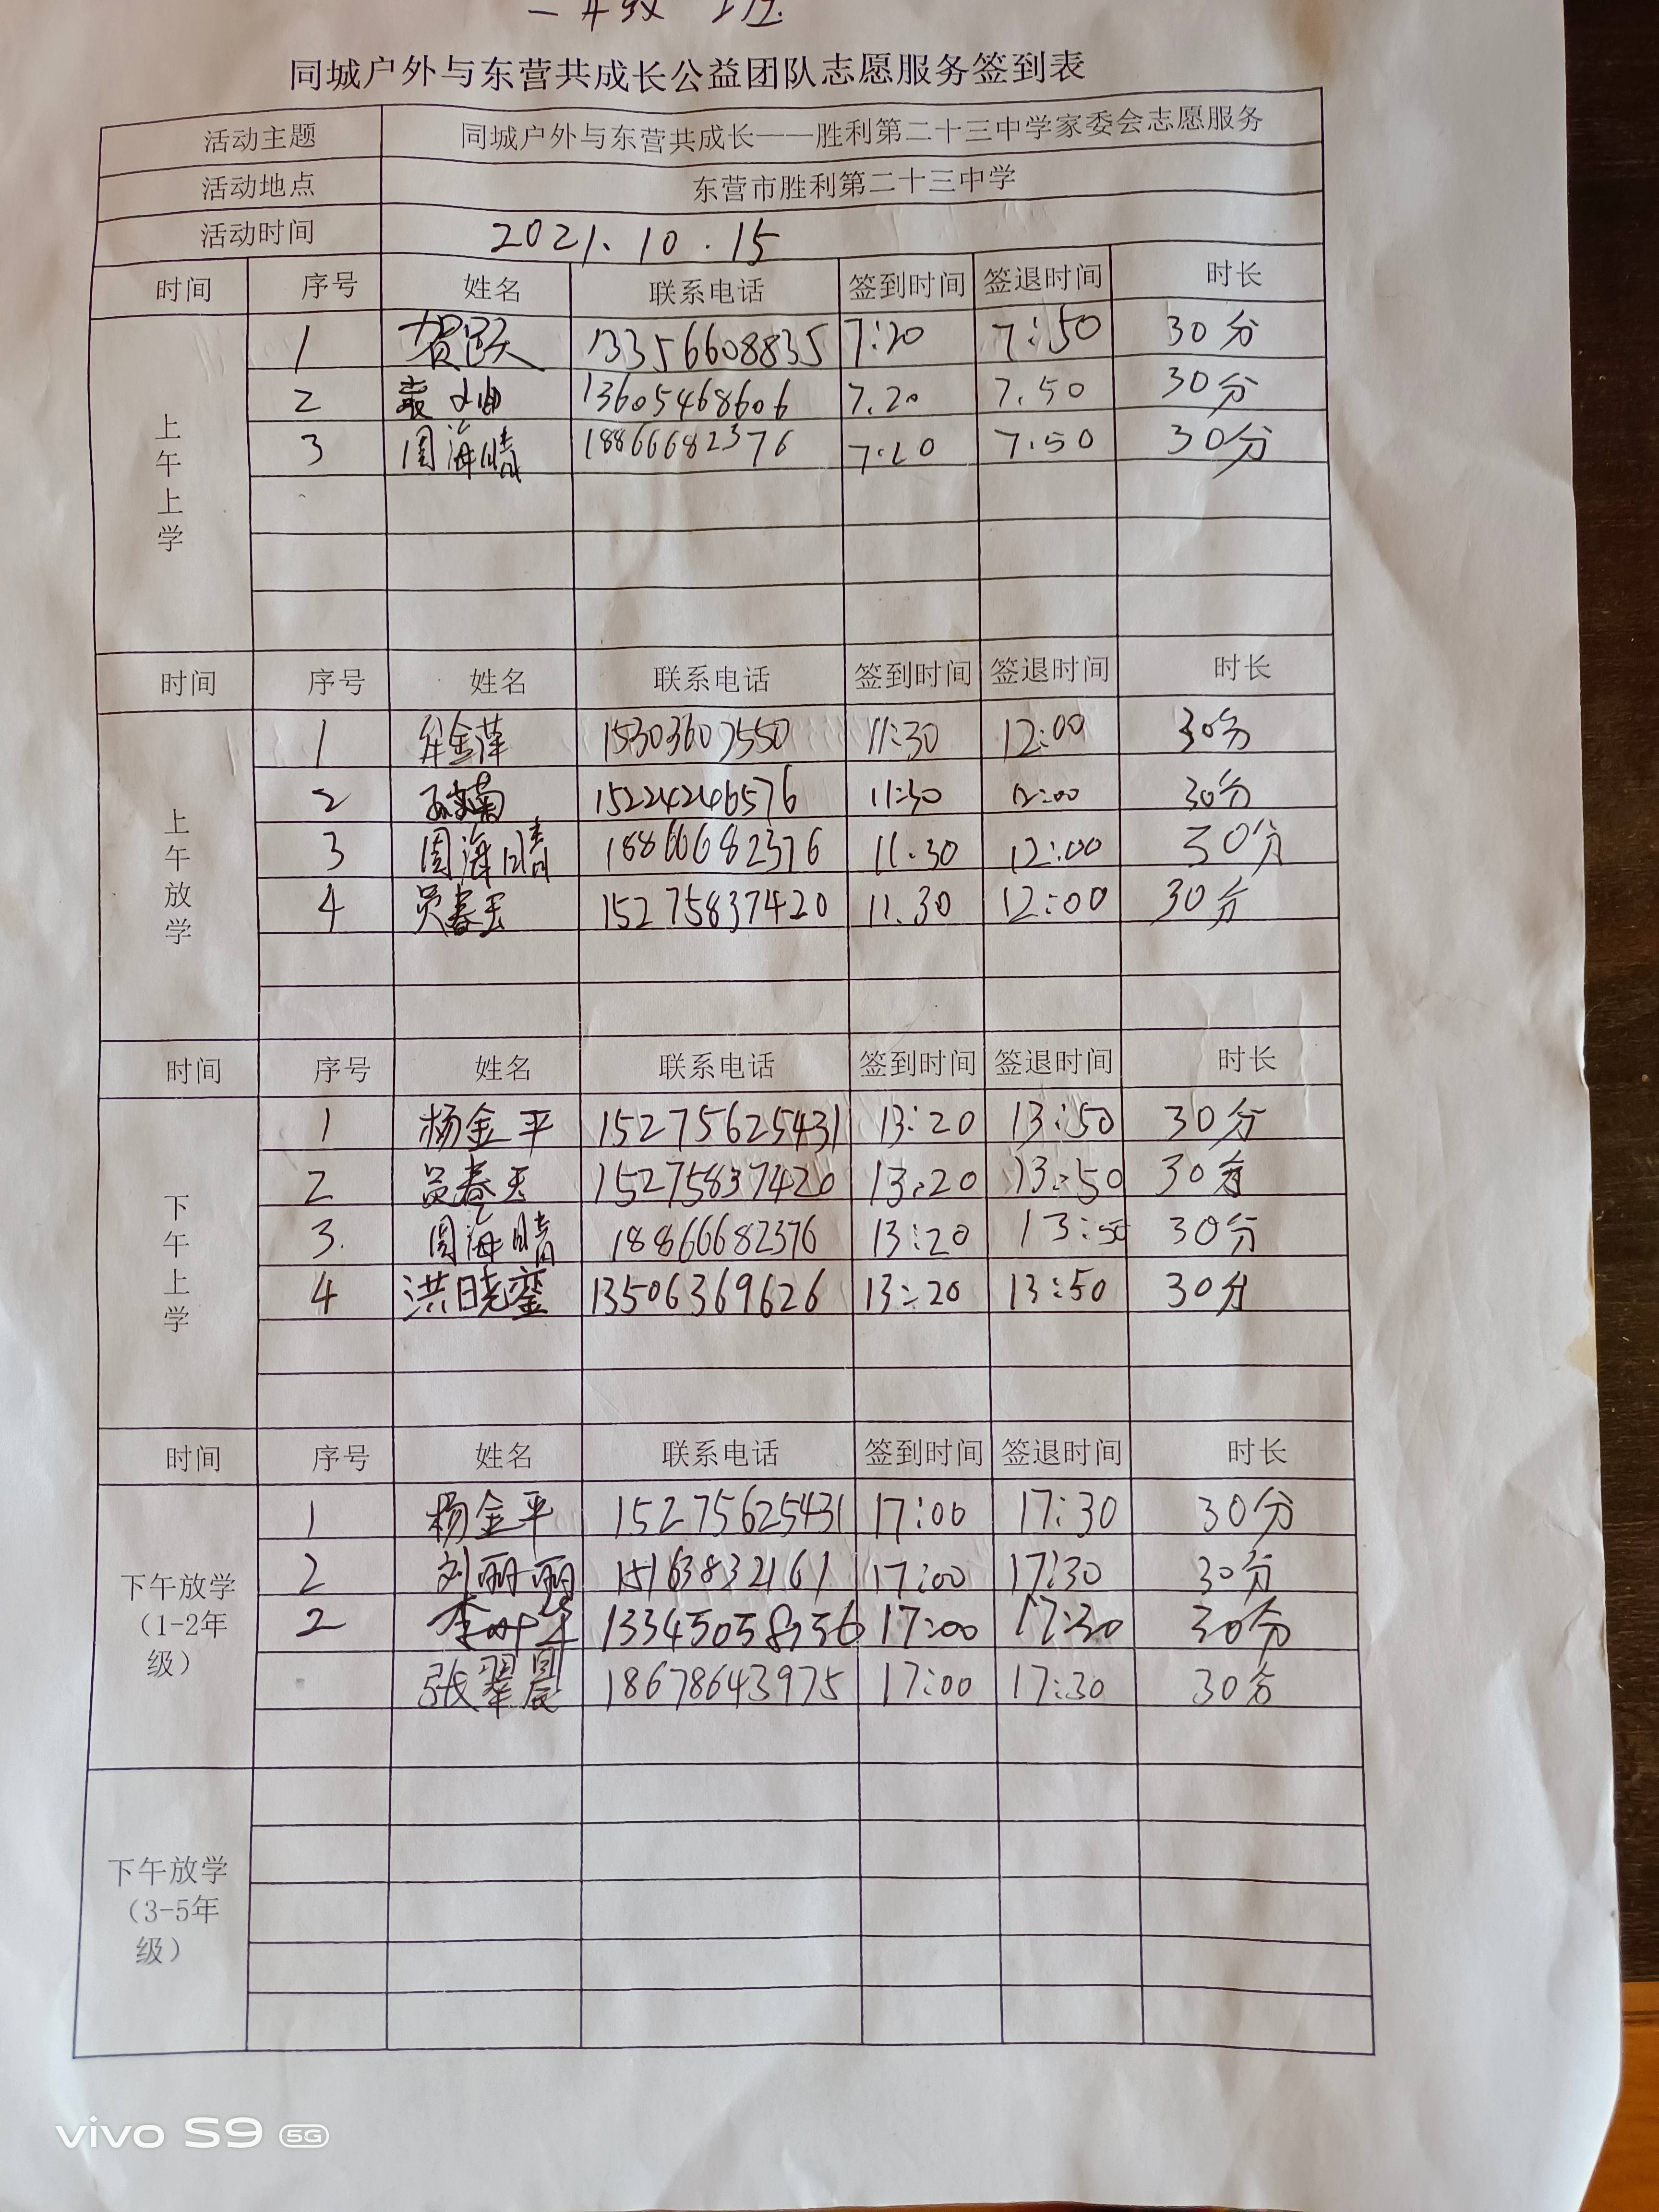 同城户外与东营共成长公益团队志愿服务签到表
活动主题 同城户外与东营共成长——胜利第二十三中学家委会志愿服务
活动地点 东营市胜利第二十三中学
活动时间 2021.10.15
时间 序号 姓名 联系电话 签到时间 签退时间 时长
上午上学
1 13356608835 7:20 7:50 30分
2 13605468606 7.20 7.50 30分
3 周海晴 18866682376 7.20 7.50 30分
时间 序号 姓名 联系电话 签到时间 签退时间 时长
上午放学
1 牟金萍 15303607550 11:30 12:00 30分
2 15224246576 11:30 12:00 30分
3 周海晴 18866682376 11.30 12:00 30分
4 员春玉 15275837420 11.30 12:00 30分
时间 序号 姓名 联系电话 签到时间 签退时间 时长
下午上学
1 杨金平 15275625431 13:20 13:50 30分
2 员春玉 15275837420 13:20 13:50 30分
3. 周海晴 18866682376 13:20 13:50 30分
4 洪晓銮 13506369626 13:20 13:50 30分
时间 序号 姓名 联系电话 签到时间 签退时间 时长
下午放学（1-2年级）
1 杨金平 15275625431 17:00 17:30 30分
2 刘丽丽 15163832161 17:00 17:30 30分
2 17:00 17:30 30分
张翠晨 18678643975 17:00 17:30 30分
下午放学（3-5年级）
vivo S9 5G